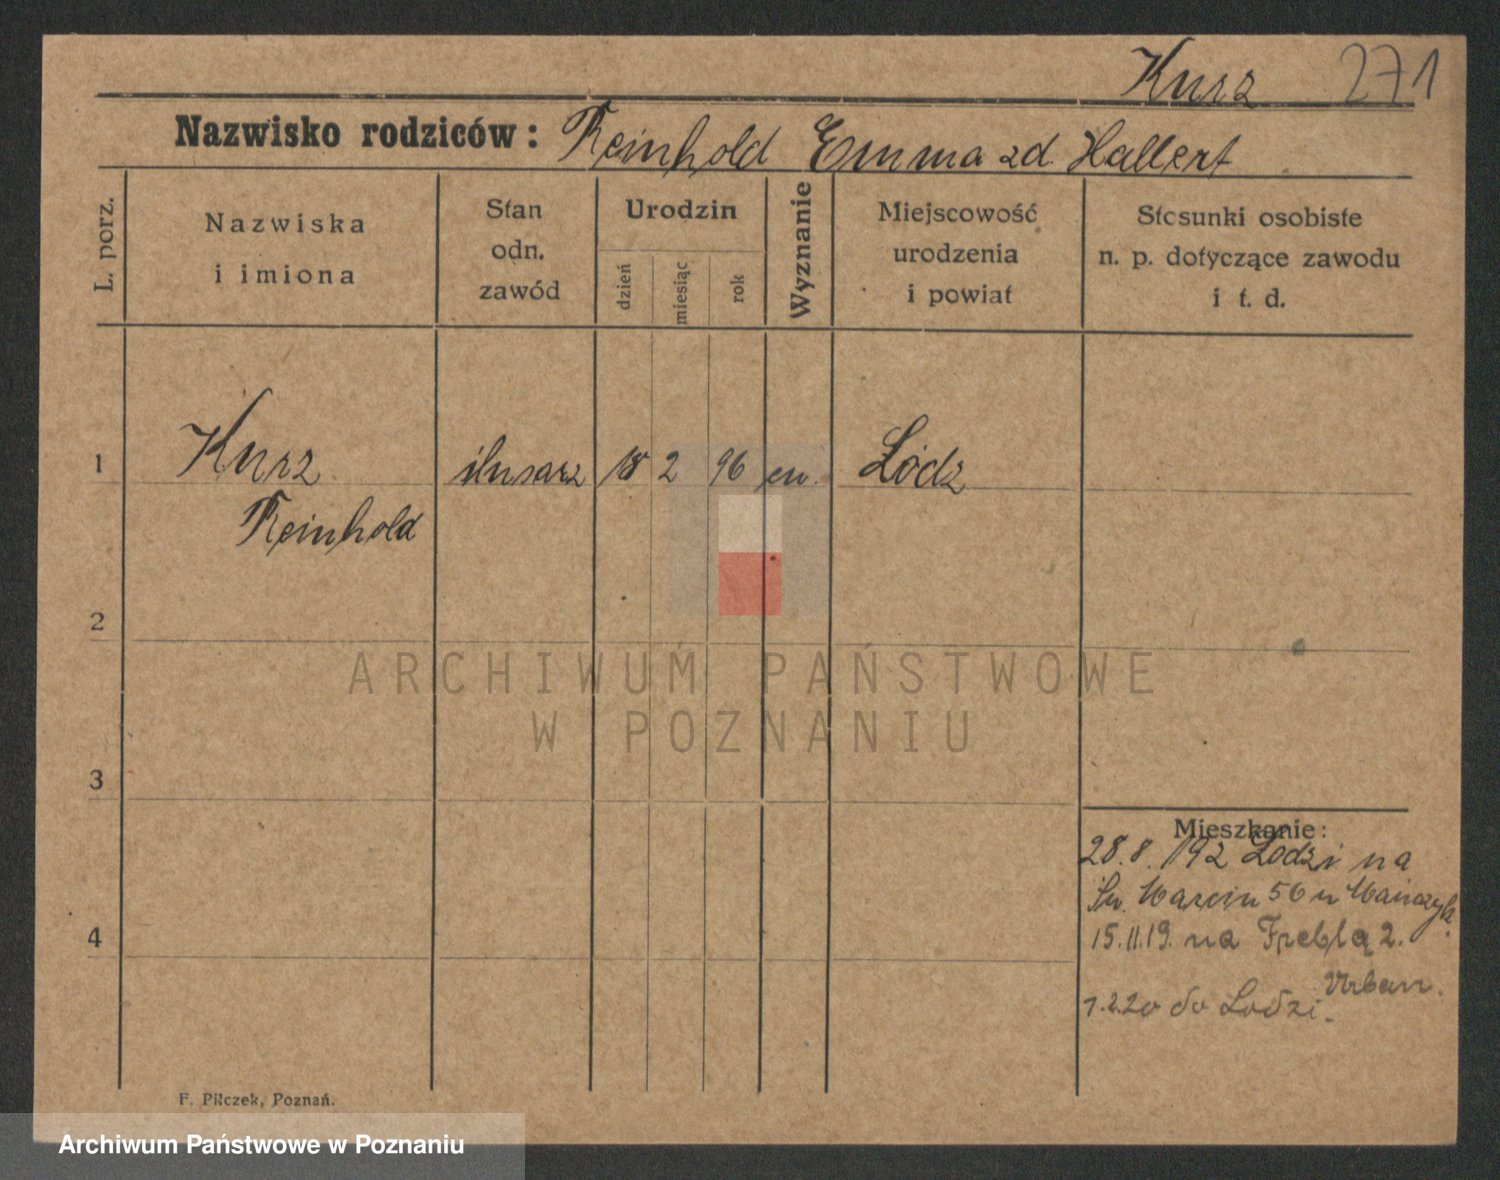 Kurz 271
Nazwisko rodziców: Reinhold Emma zd. Hallert
L. porz.
Nazwiska i imiona
Stan odn. zawód
Urodzin
dzień
miesiąc
rok
Wyznanie
Miejscowość urodzenia i powiat
Stosunki osobiste n. p. dotyczące zawodu i t. d.
1
Kurz
ślusarz
18
2
96
ew.
Łódz
Reinhold
2
ARCHIWUM PAŃSTWOWE
W POZNANIU
3
Mieszkanie:
28.8. 19 z Łodzi na
Św. Marcin 56 u
4
15.11.19. na Frebla 2.
Urban.
1.2.20 do Lodzi.
F. Pilczek, Poznań.
Archiwum Państwowe w Poznaniu